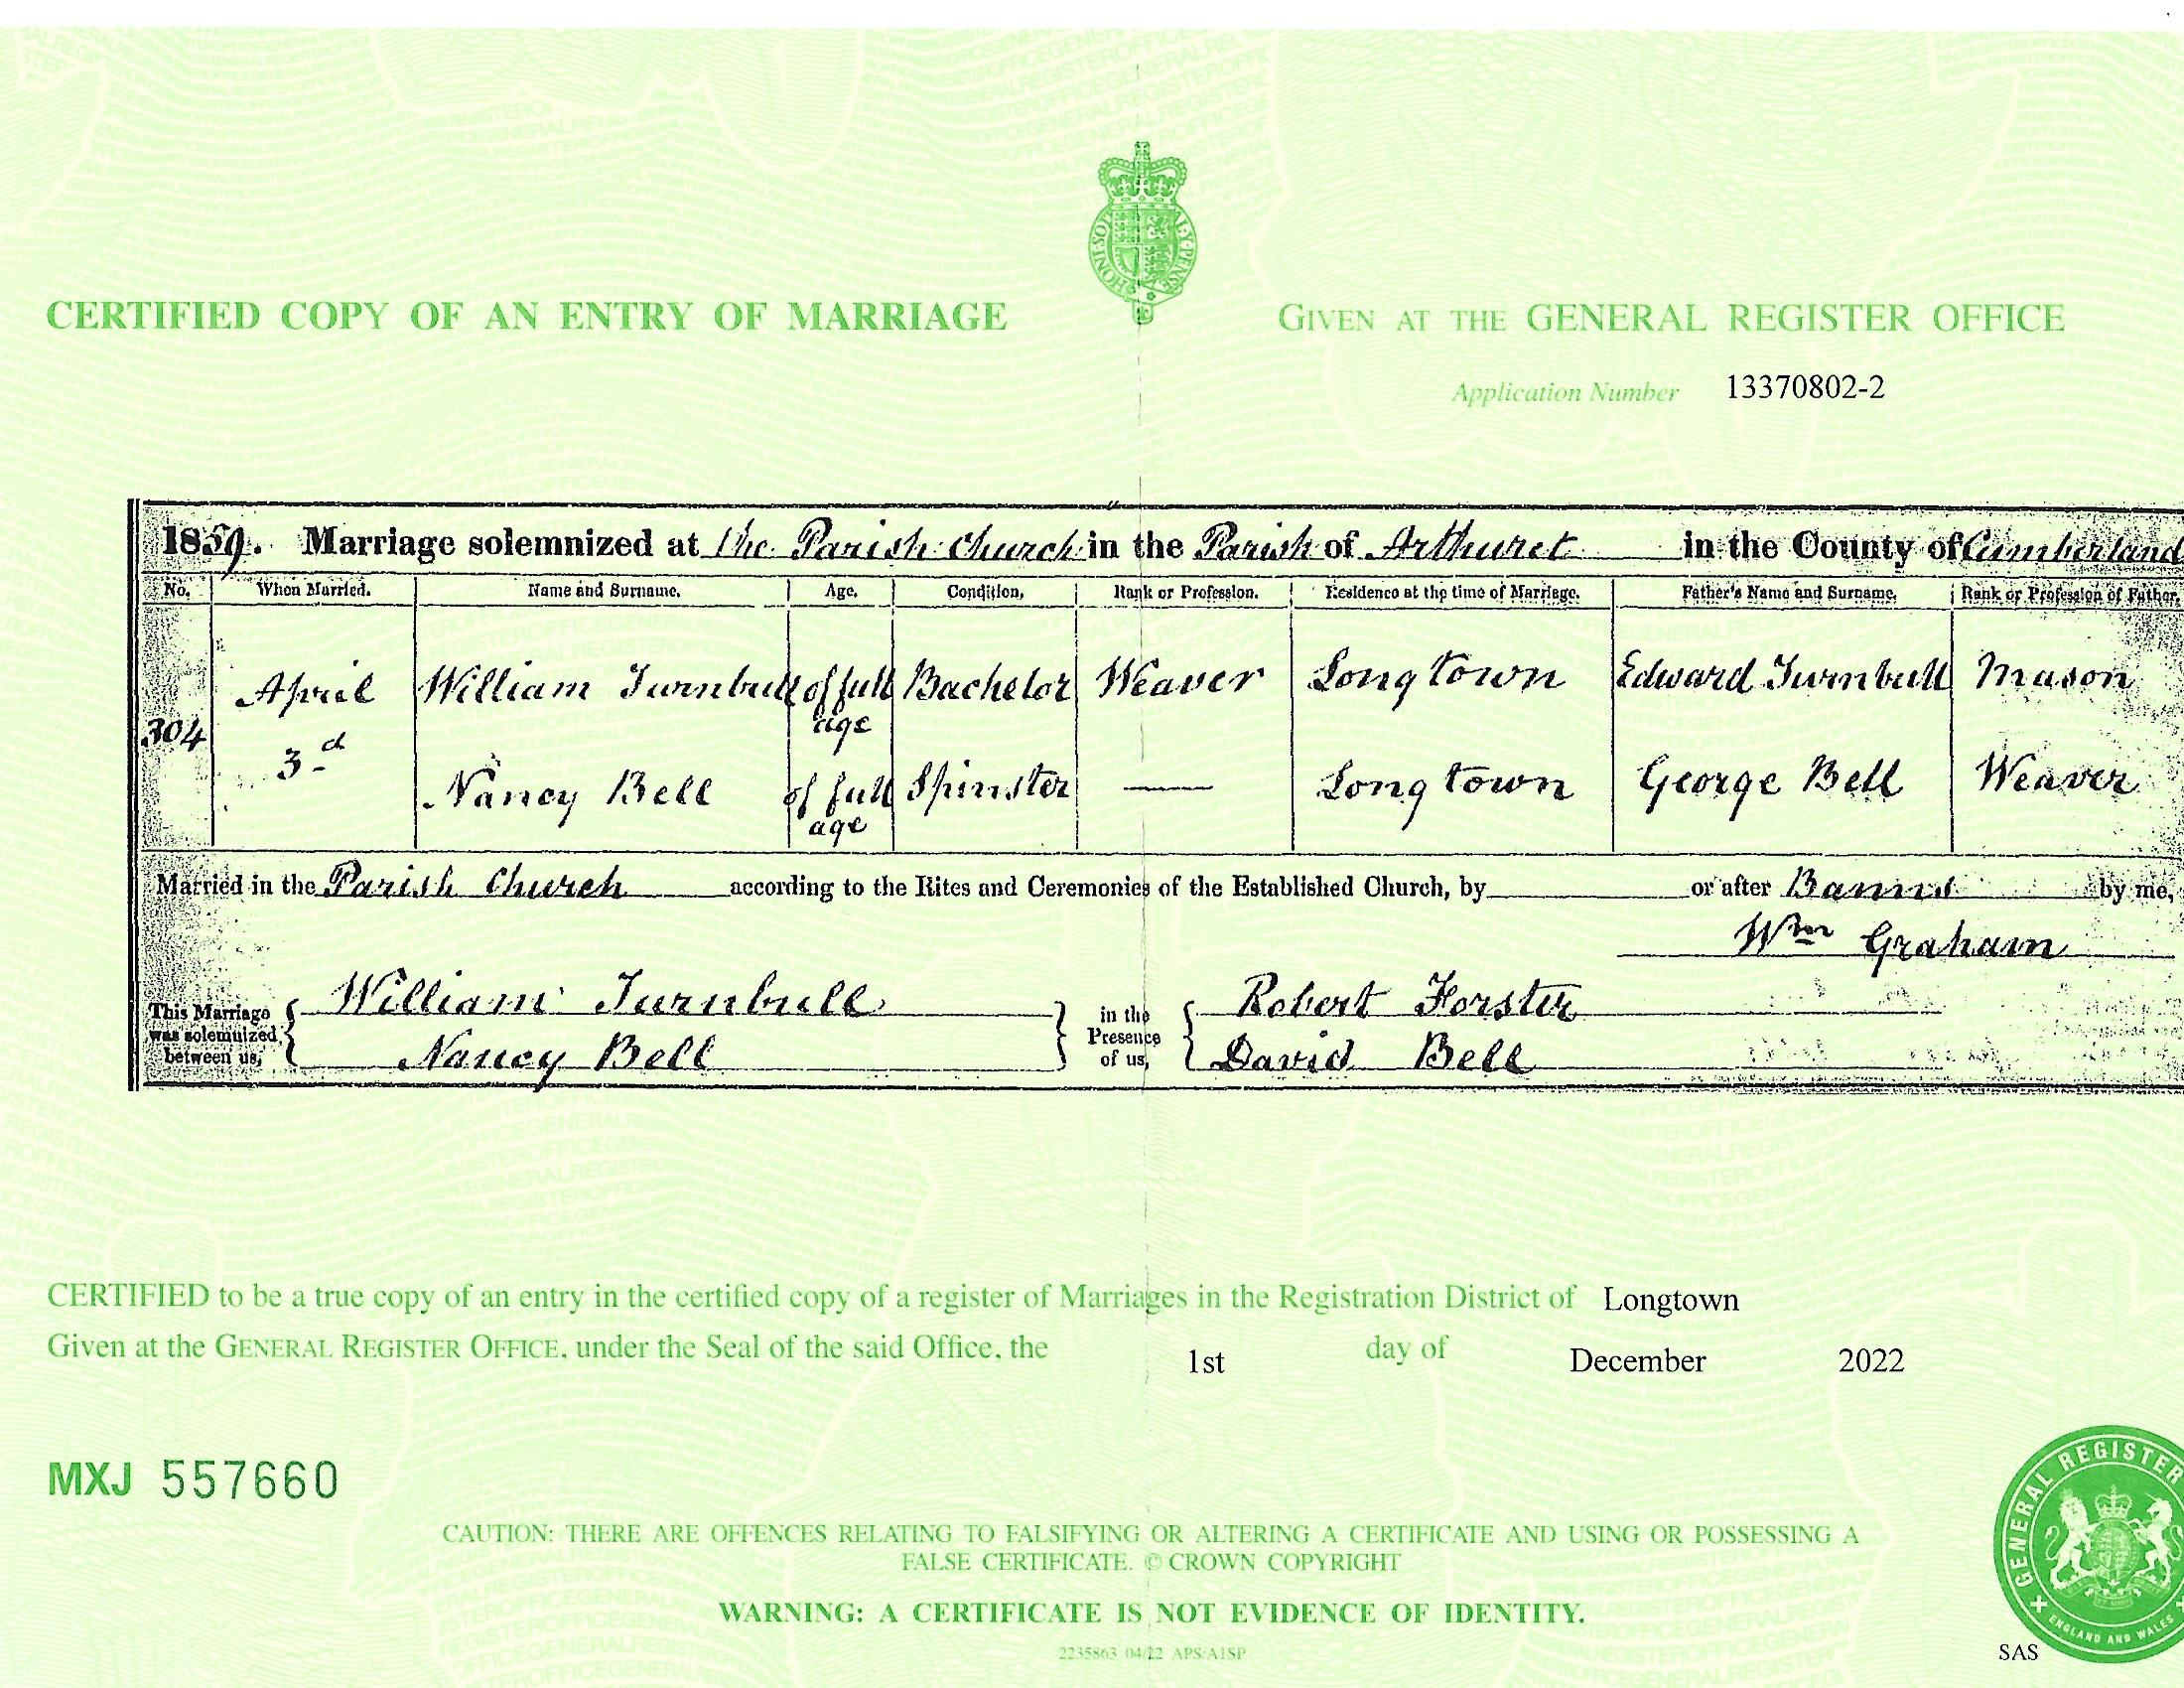 CERTIFIED COPY OF AN ENTRY OF MARRIAGE
GIVEN AT THE GENERAL REGISTER OFFICE
Application Number 13370802-2
1859. Marriage solemnized at the Parish Church in the Parish of Arthuret in the County of Cumberland
No. When Married. Name and Surname. Age. Condition. Rank or Profession. Residence at the time of Marriage. Father's Name and Surname. Rank or Profession of Father.
April William Turnbull of full age Bachelor Weaver Longtown Edward Turnbull Mason
304
3d Nancy Bell of full age Spinster — Longtown George Bell Weaver
Married in the Parish Church according to the Rites and Ceremonies of the Established Church, by or after Banns by me,
Wm Graham
This Marriage was solemnized between us, { William Turnbull } in the Presence of us, { Robert Forster
Nancy Bell David Bell
CERTIFIED to be a true copy of an entry in the certified copy of a register of Marriages in the Registration District of Longtown
Given at the GENERAL REGISTER OFFICE, under the Seal of the said Office, the 1st day of December 2022
MXJ 557660
CAUTION: THERE ARE OFFENCES RELATING TO FALSIFYING OR ALTERING A CERTIFICATE AND USING OR POSSESSING A
FALSE CERTIFICATE. © CROWN COPYRIGHT
WARNING: A CERTIFICATE IS NOT EVIDENCE OF IDENTITY.
2235863 04/22 APS/A1SP
GENERAL REGISTER
ENGLAND AND WALES
SAS